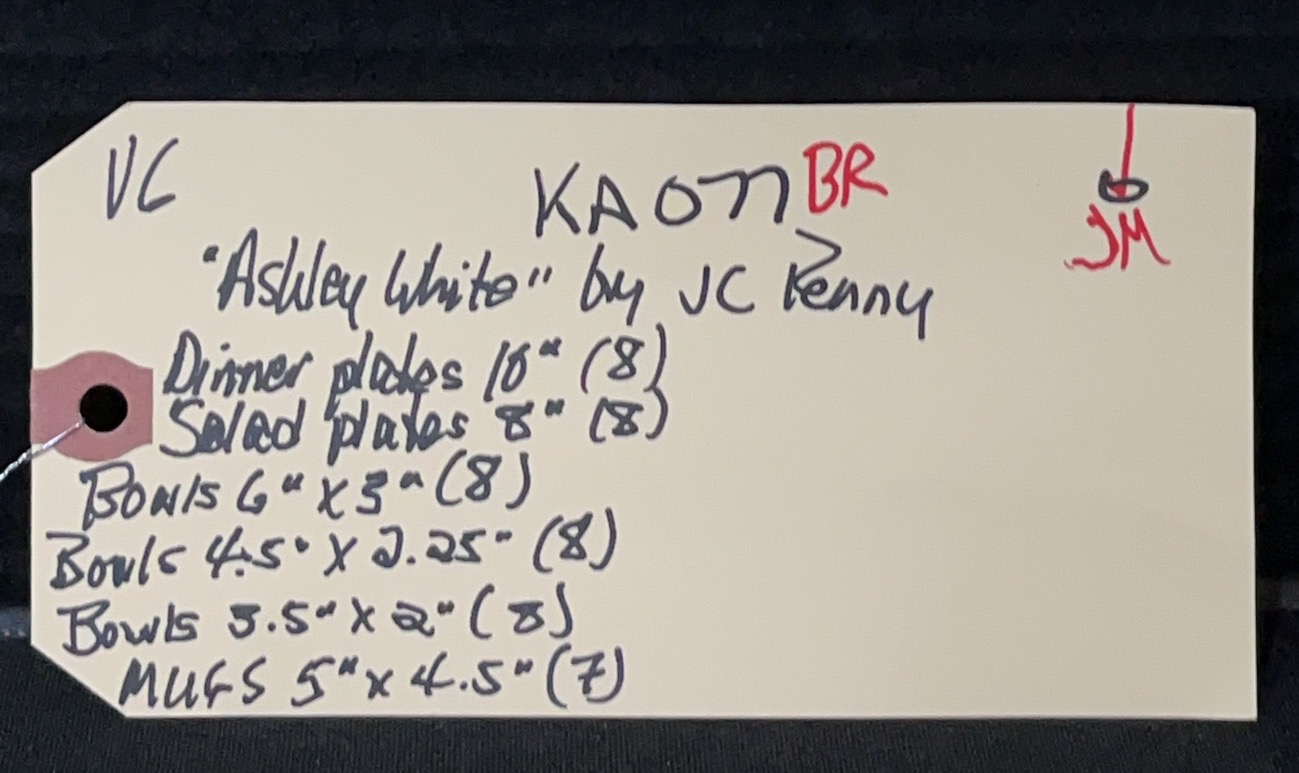 VC KAO77 BR
JM
"Ashley White" by JC Penny
Dinner plates 10" (8)
Salad plates 8" (8)
Bowls 6" X 3" (8)
Bowls 4.5" X 2.25" (8)
Bowls 3.5" X 2" (8)
MUGS 5" X 4.5" (7)